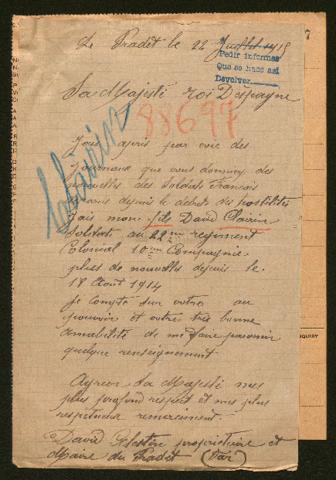 Le Pradet le 22 Juillet 1915
Pedir informes
Que se hace asi
Devolver
Sa Majesté roi D'espagne
88697
J'ais apris par voie des
Journaux que vous donniez des
nouvelles des Soldats Francais
depuis le debut des hostilités
J'ais mon fils David
Soldats au 22me regiment
Colonial 10me Compagnie
plus de nouvelles depuis le
18 Aout 1914
Je Compte sur votre au
pouvoir et votre très bonne
amabilité de me faire parvenir
quelque renseignement
Agreer Sa Majesté mes
plus profond respect et mes plus
respectueux remerciement.
David proprietaire et
Maire du Pradet (Var)